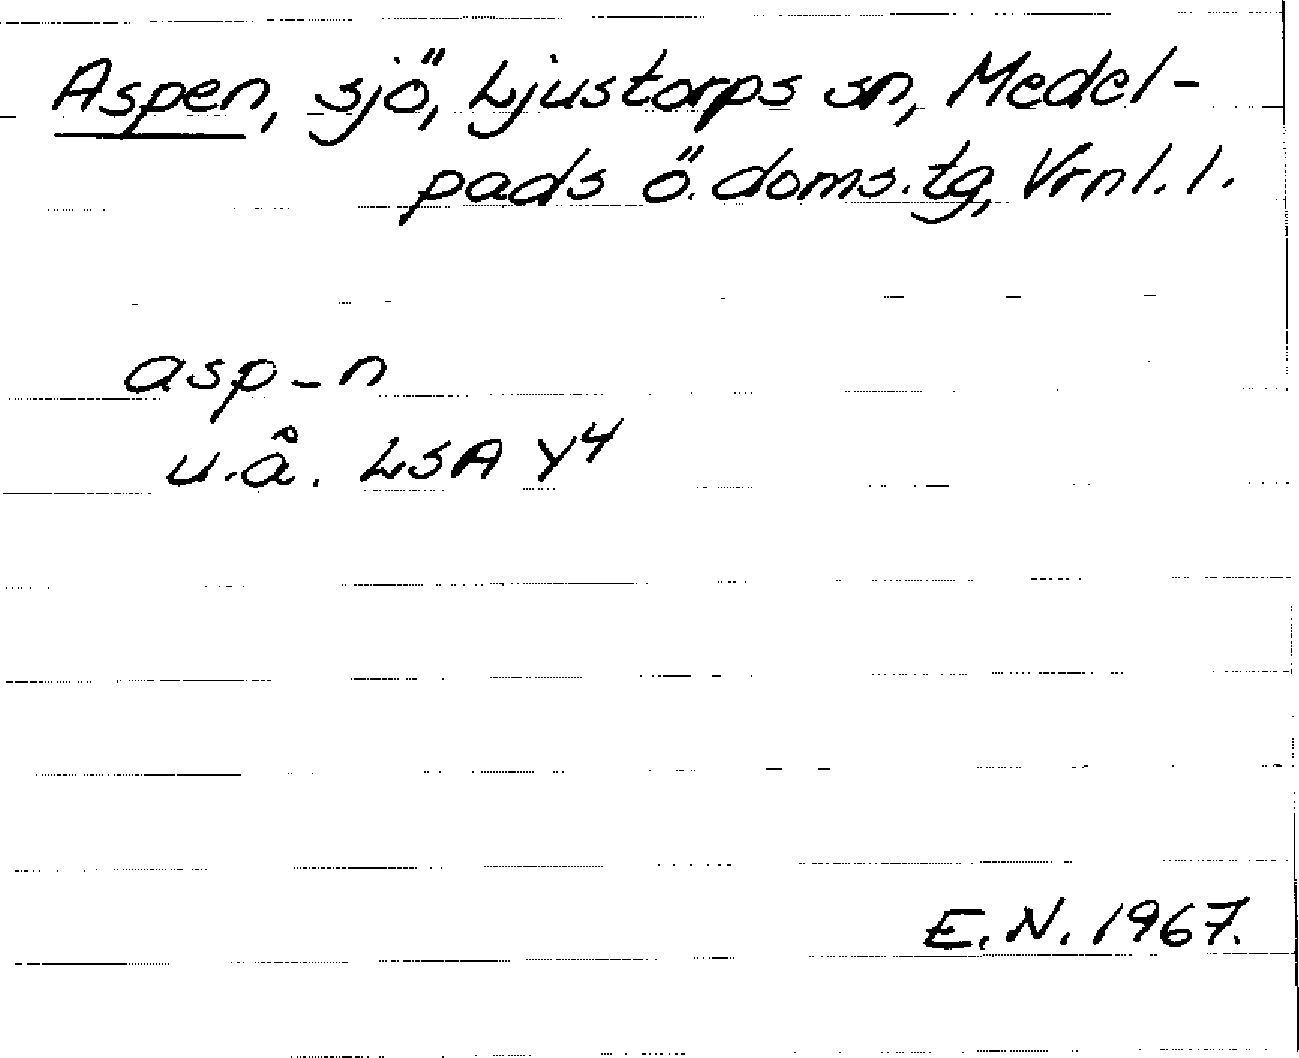 Aspen, sjö, Ljustorps sn, Medel-
pads ö. doms. tg, Vrnl. l.
asp-n
u.å. LSA Y4
E.N. 1967.